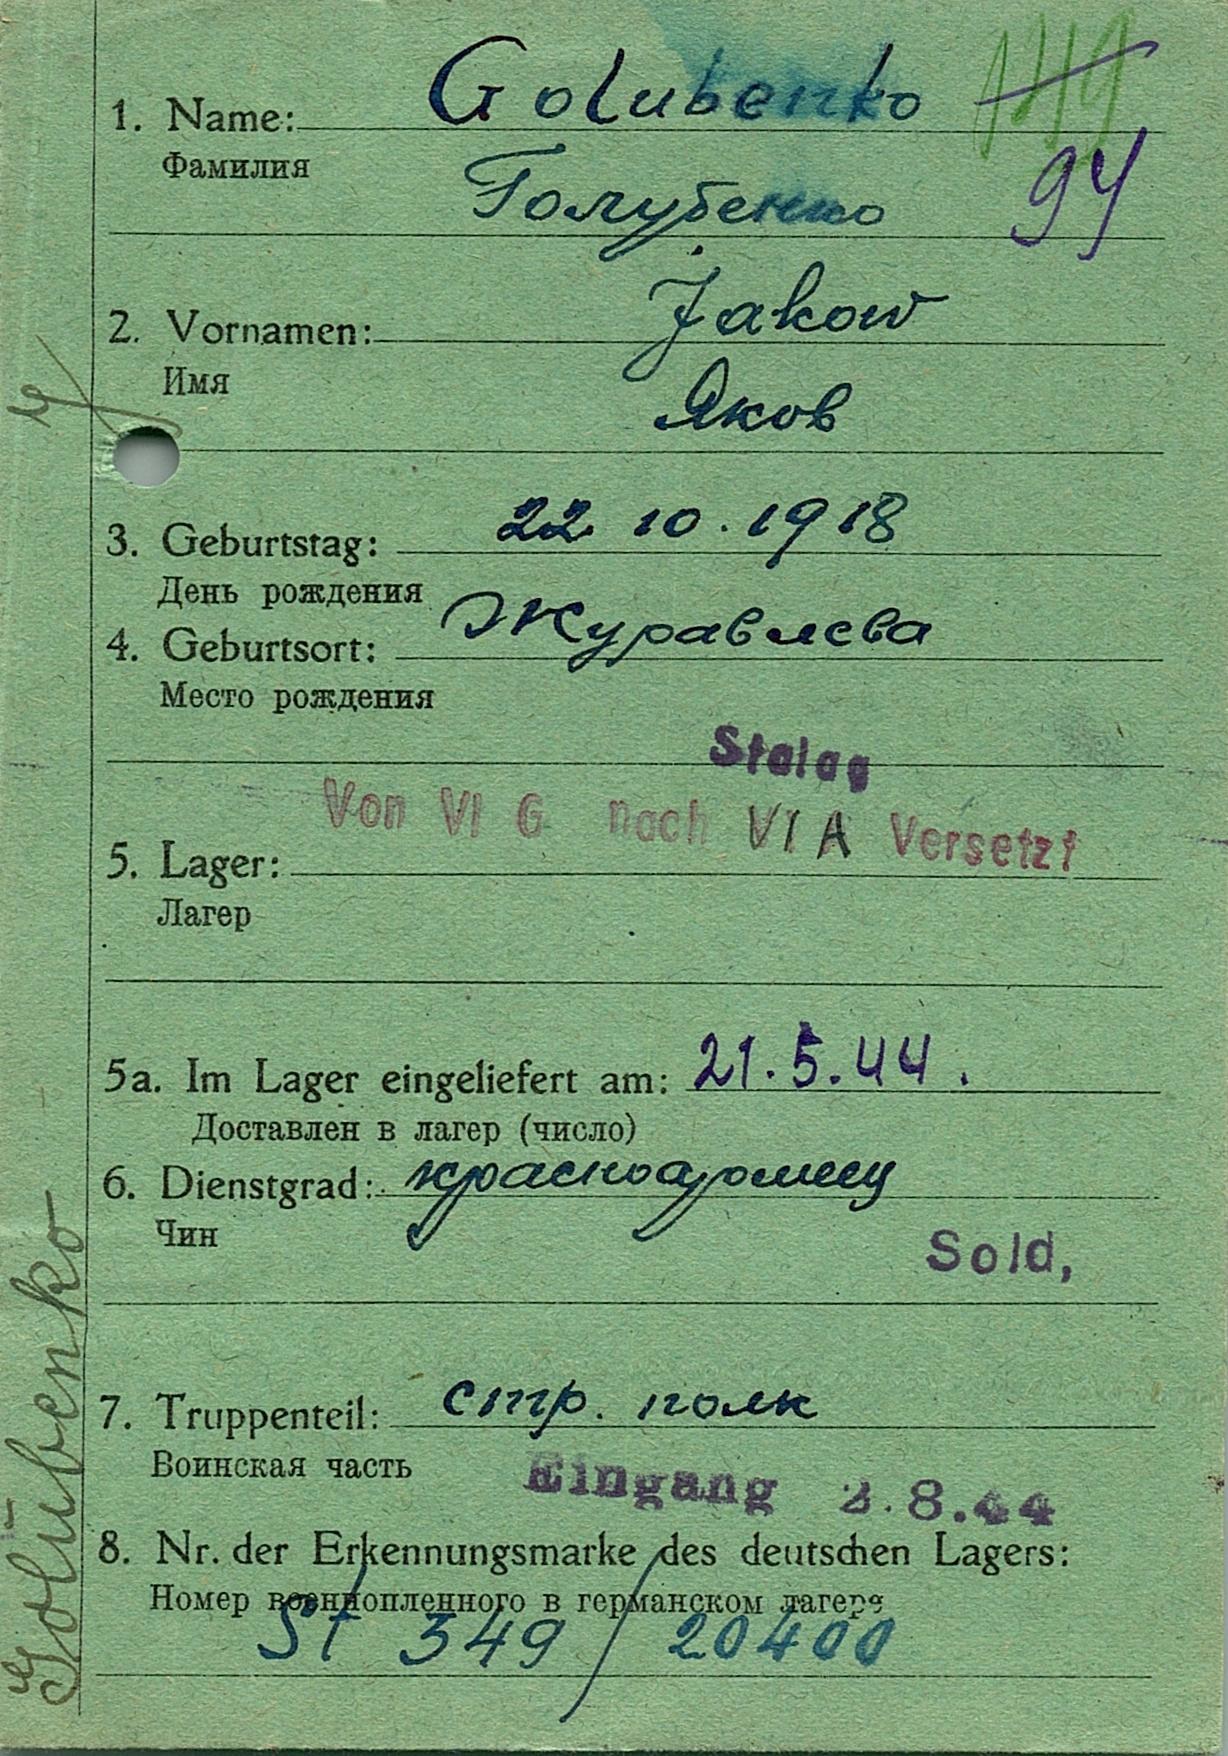 1. Name: Golubenko 119
Фамилия
Голубенко 94
2. Vornamen: Jakow
Имя
Яков
3. Geburtstag: 22 10. 1918
День рождения
4. Geburtsort: Журавлева
Место рождения
Stalag
Von VI G nach VI A Versetzt
5. Lager:
Лагер
5a. Im Lager eingeliefert am: 21.5.44.
Доставлен в лагер (число)
6. Dienstgrad: красноармеец
Чин
Sold,
7. Truppenteil: стр. полк
Воинская часть
Eingang 2.8.44
8. Nr. der Erkennungsmarke des deutschen Lagers:
Номер военнопленного в германском лагере
St 349 / 20400
Golŭbenko